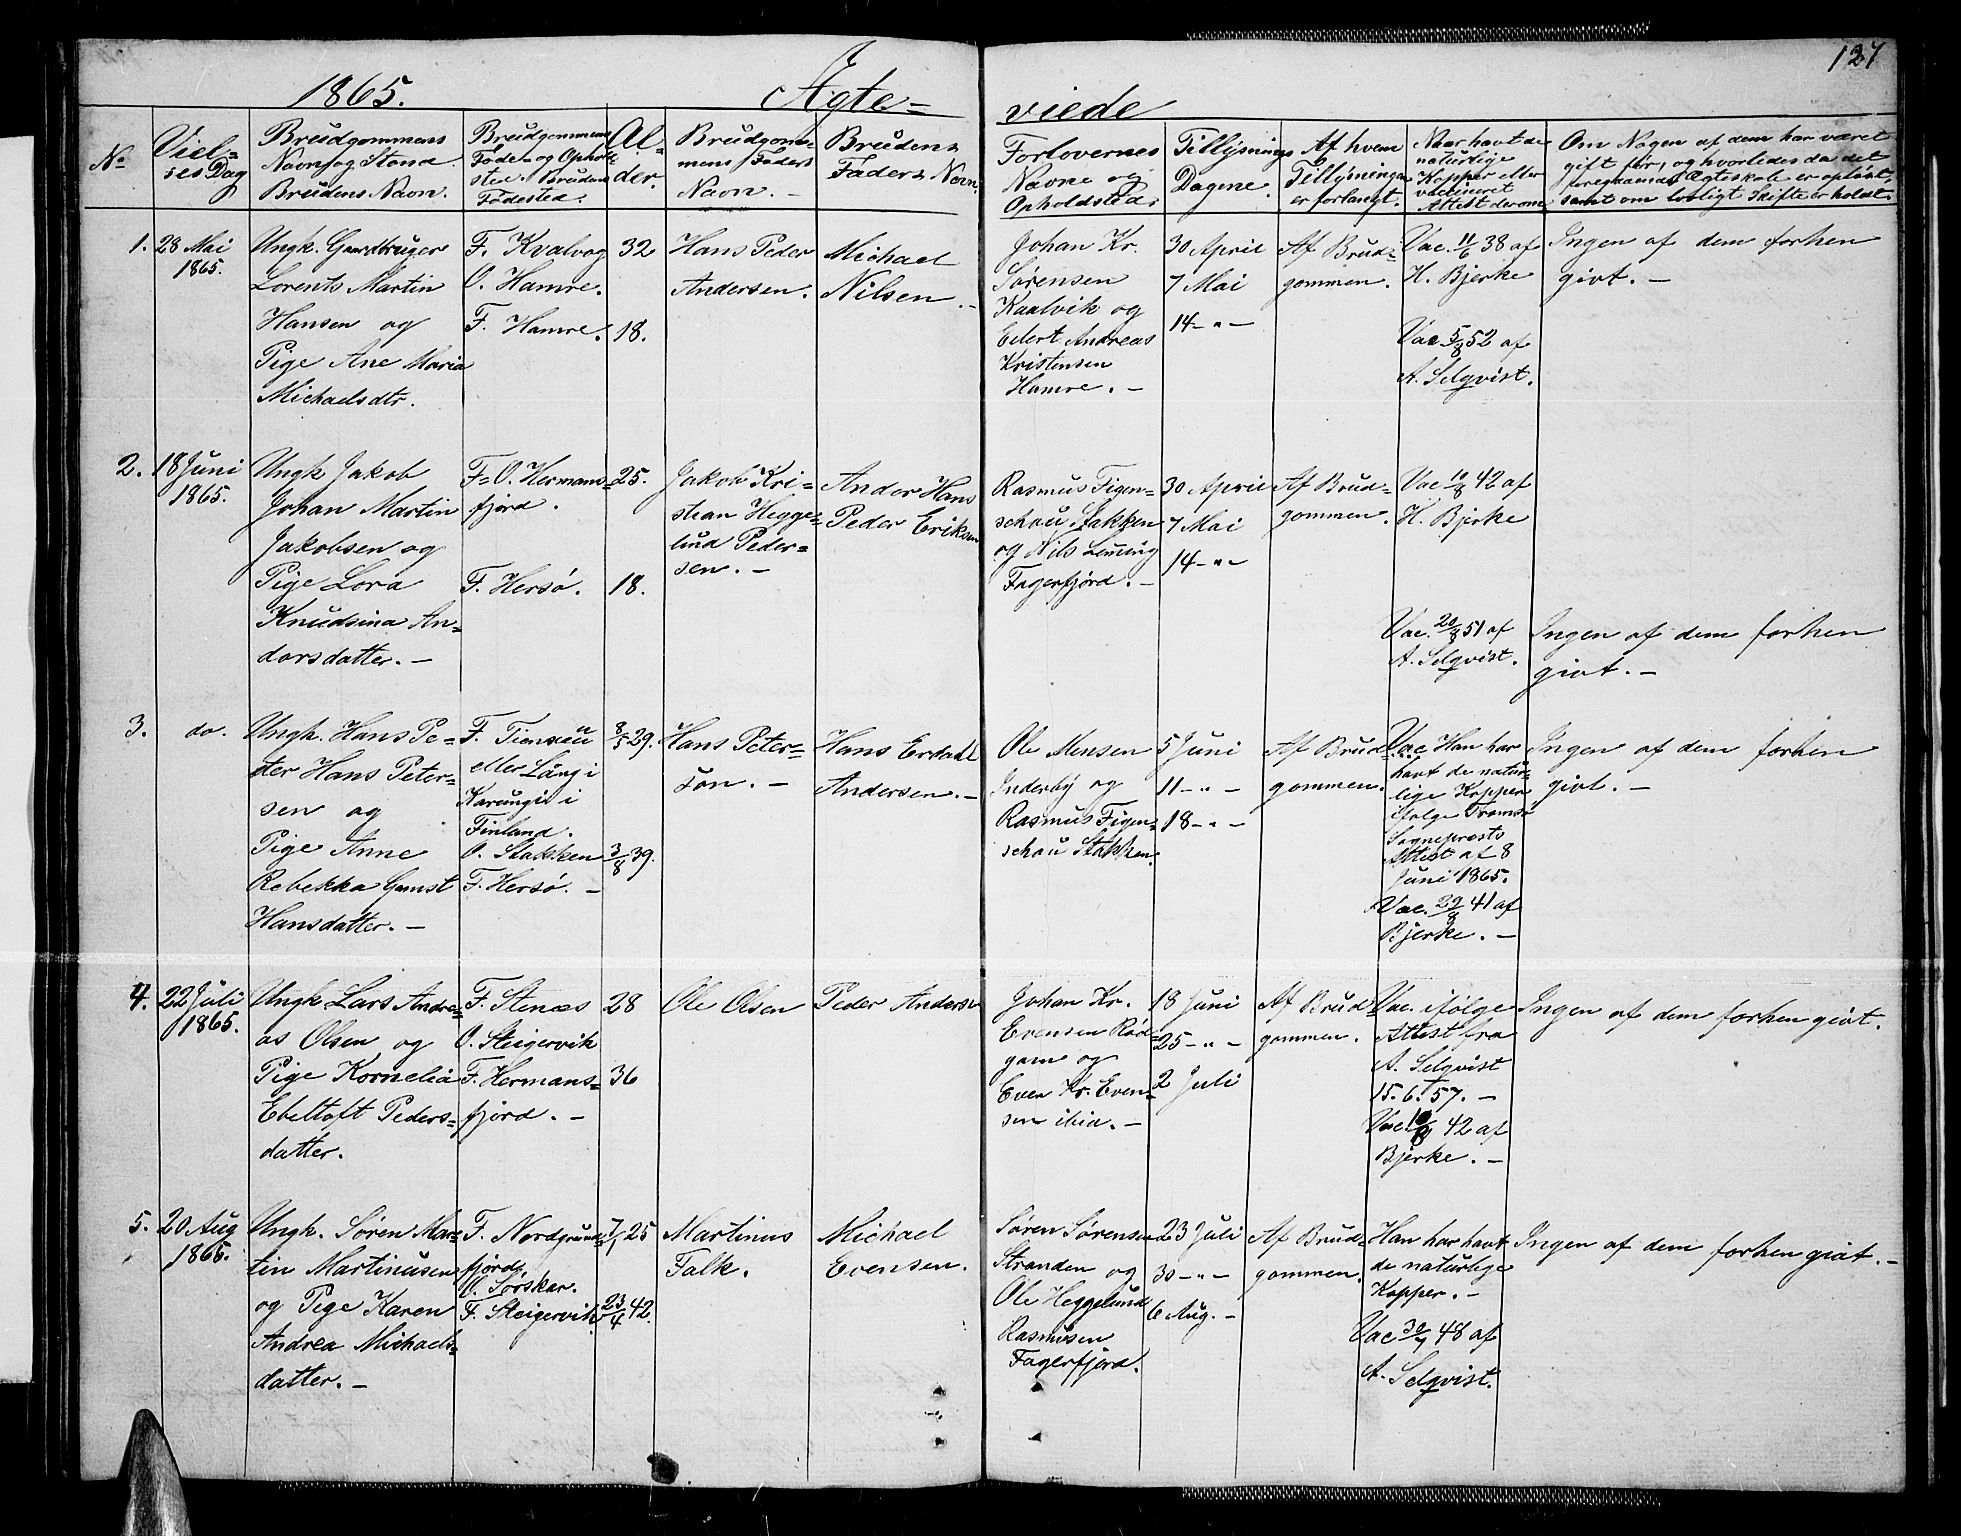 127
1865. Ægte=
viede
No
Viel=
ses Dag
Brudgommens
Navn og Stand
Brudens Navn.
Brudgommens
Føde- og Opholds
sted. Brudens
Fødested.
Al-
der.
Brudgom=
mens Faders
Navn. -
Brudens
Faders Navn
Forlovernes
Navne og
Opholdsted.
Tillysnings
Dagene.
Af hvem
Tillysningen
er forlangt.
Naar havt de
naturlige
Kopper eller
vaccineret
Attest derom
Om Nogen af dem har været
gift før, og hvorledes da det
foregaaende Ægteskab er opløst,
samt om lovligt Skifte er holdt.
1.
28 Mai
1865.
Ungk. Gaardbruger
Lorents Martin
Hansen og
Pige Ane Maria
Michaelsdtr.
F. Kvalvog
O. Hamre.
F. Hamre.
32
18.
Hans Peder
Andersen.
Michael
Nilsen. -
Johan Kr.
Sørensen
Kaalvik og
Edert Andreas
Kristensen
Hamre. -
30 April
7 Mai
14 - " -
Af Brud=
gommen.
Vac. 11/6 38 af
H. Bjerke
Vac 5/8 52 af
A. Selqvist.
Ingen af dem forhen
givt. -
2.
18 Juni
1865.
Ungk Jakob
Johan Martin
Jakobsen og
Pige Lora
Knudsina An=
dorsdatter. -
F=O. Hermans=
fjord.
F. Hersø.
25.
18.
Jakob Kri=
stian Hegge=
lund Peder=
sen. -
Andor Hans
Peder Eriksen
Rasmus Figen=
schou Stakken
og Nils Lening
Fagerfjord. -
30 April
7 Mai
14 - " -
Af Brud=
gommen.
Vac 10/8 42 af
H. Bjerke
Vac. 20/8 51 af
A. Selqvist.
Ingen af dem forhen
givt. -
3.
do.
Ungk. Hans Pe=
der Hans Peter=
sen og
Pige Anne
Rebekka Gamst
Hansdatter. -
F. Tiensuu
eller Lång i
Karungi i
Finland.
O. Stakken
F. Hersø. -
8/5 29.
3/8 39.
Hans Peter=
søn. -
Hans Erdahl
Andersen. -
Ole Mensen
Inderby og
Rasmus Figen=
schou Stakken.
5 Juni
11 - " -
18 - " -
Af Brud=
gommen.
Vac Han har
havt de natur=
lige Kopper
ifølge Tromsø
Sogneprests
Attest af 8
Juni 1865.
Vac. 29/8 41 af
Bjerke. -
Ingen af dem forhen
givt. -
4.
22 Juli
1865.
Ungk. Lars Andre=
as Olsen og
Pige Kornelia
Ebeltoft Peders=
datter.
F. Stenæs
O. Steigervik
F. Hermans=
fjord. -
28
36
Ole Olsen
Peder Andersen
Johan Kr.
Evensen Rød=
gam og
Even Kr. Even=
sen ibid. -
18 Juni
25 - " -
2 Juli
Af Brud=
gommen.
Vac. ifølge
Attest fra
A. Selqvist
15. 6. 57. -
Vac 10/8 42 af
Bjerke. -
Ingen af dem forhen givt.
5.
20 Aug
1865.
Ungk. Søren Mar=
tin Martinusen
og Pige Karen
Andrea Michaels=
datter. -
F. Nordgrunde=
fjord.
O. Sørskar.
F. Steigervik.
7/1 25
23/4 42.
Martinus
Falk.
Michael
Evensen.
Søren Sørensen
Stranden og
Ole Heggelund
Rasmusen
Fagerfjord.
23 Juli
30 - " -
6 Aug. -
Af Brud=
gommen.
Han har havt
de naturlige
Kopper. -
Vac 30/7 48 af
A. Selqvist.
Ingen af dem forhen givt. -